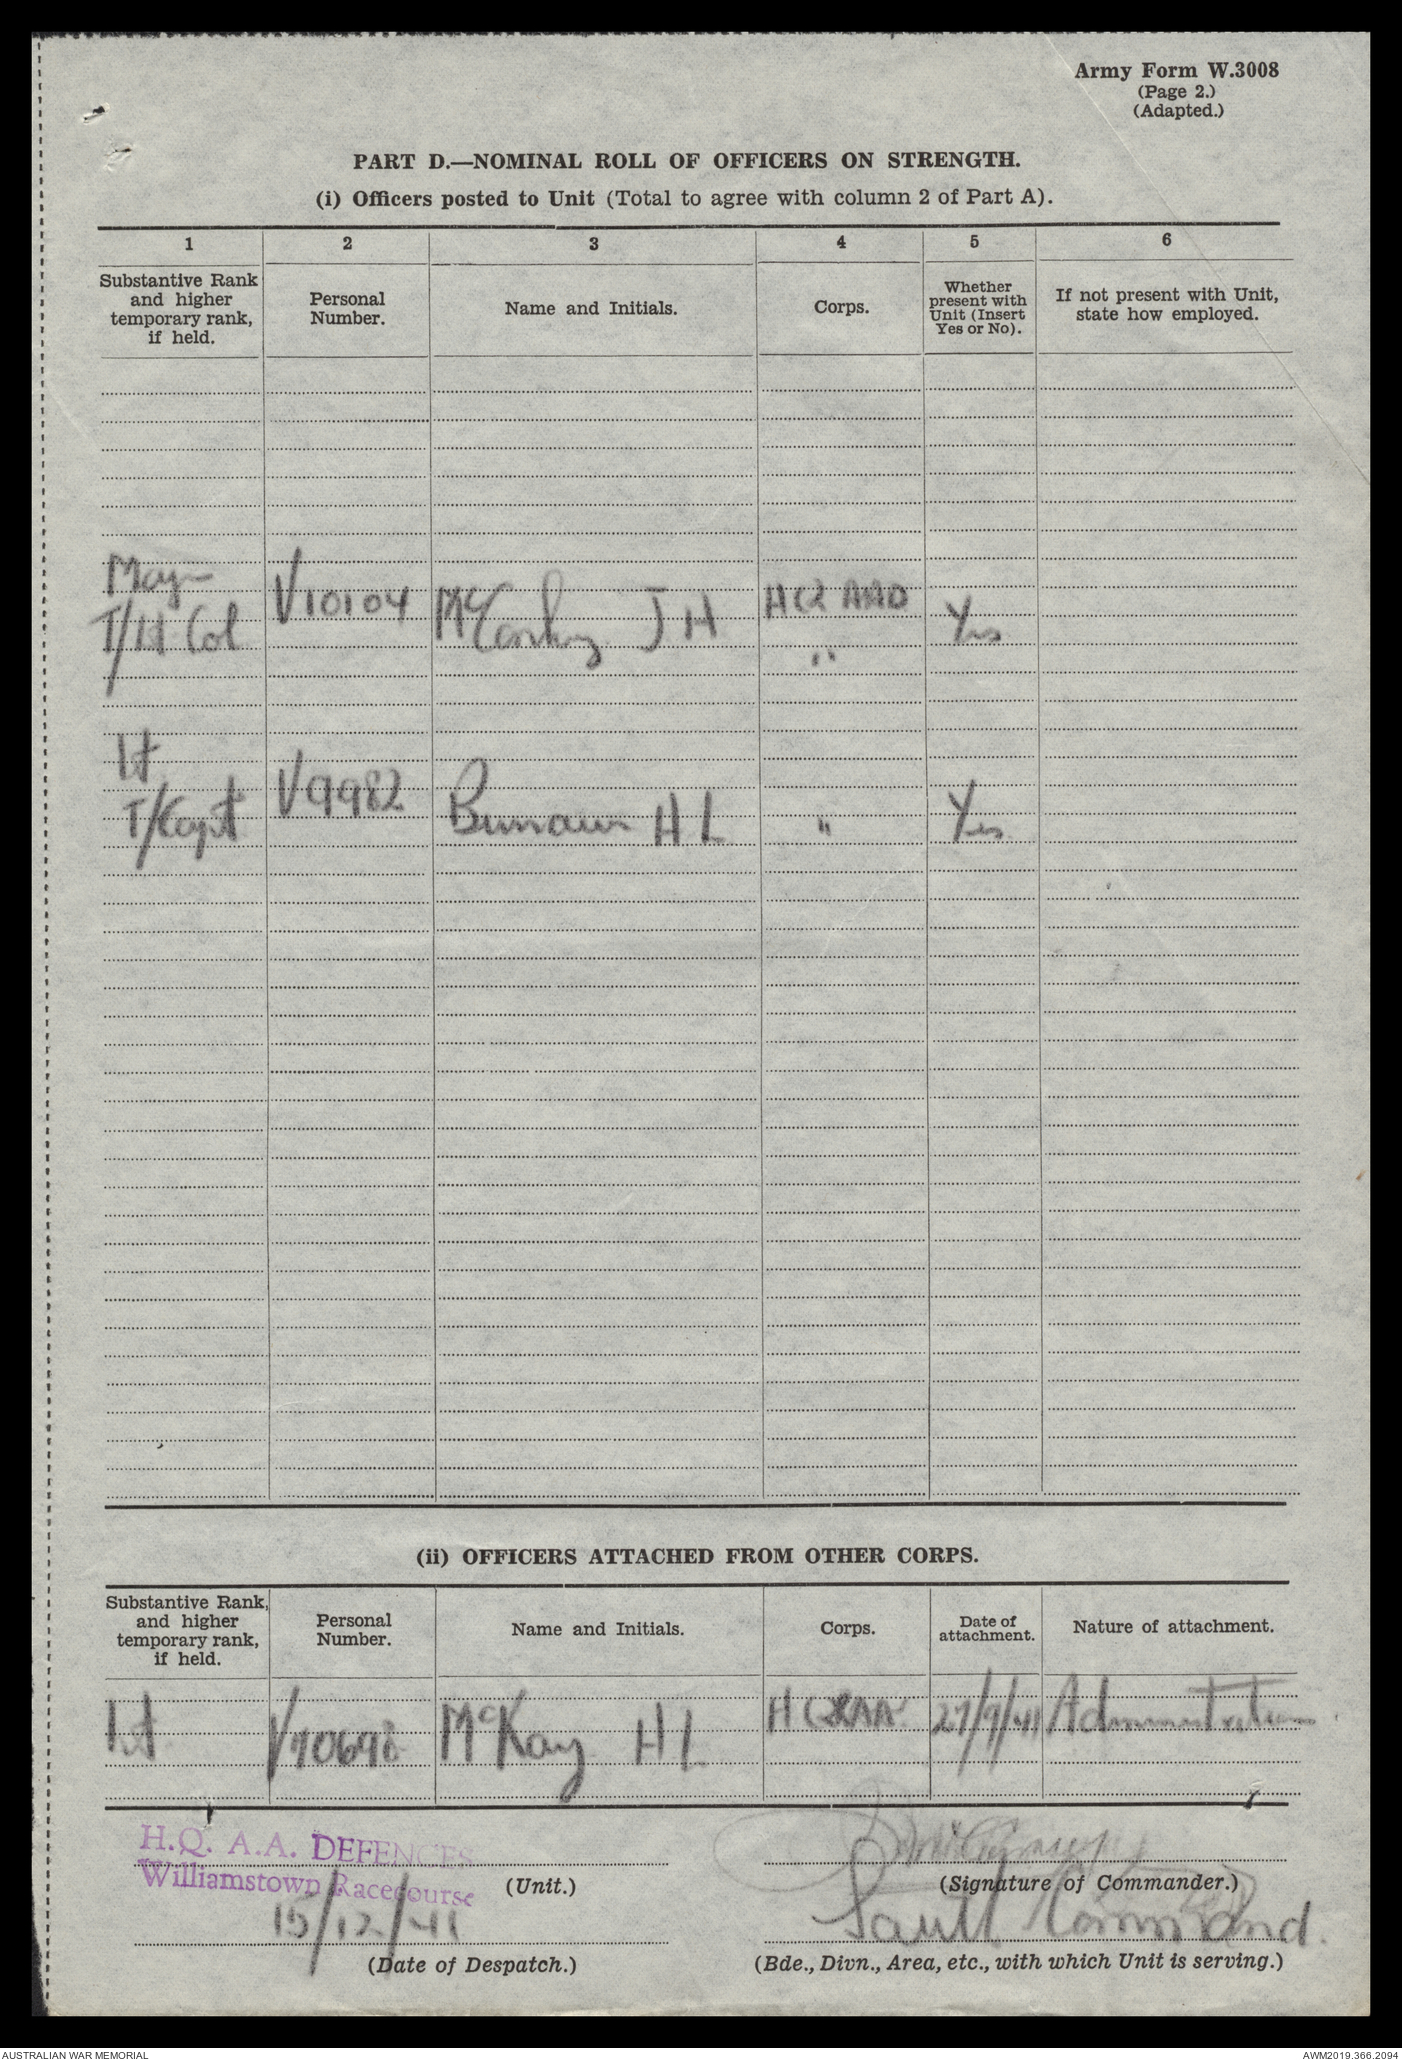 Army Form W.3008
(Page 2.)
(Adapted.)
PART D.—NOMINAL ROLL OF OFFICERS ON STRENGTH.
(i) Officers posted to Unit (Total to agree with column 2 of Part A).
1 2 3 4 5 6
Substantive Rank and higher temporary rank, if held.
Personal Number.
Name and Initials.
Corps.
Whether present with Unit (Insert Yes or No).
If not present with Unit, state how employed.
Major
T/Lt Col V10104 McCarthy J H HQ AAD Yes
"
Lt
T/Capt V9982 H L " Yes
(ii) OFFICERS ATTACHED FROM OTHER CORPS.
Substantive Rank, and higher temporary rank, if held.
Personal Number.
Name and Initials.
Corps.
Date of attachment.
Nature of attachment.
Lt McKay H L 27/9/41 Administration
H.Q. A.A. DEFENCES
Williamstown Racecourse
(Unit.)
(Signature of Commander.)
15/12/41
Command.
(Date of Despatch.)
(Bde., Divn., Area, etc., with which Unit is serving.)
AUSTRALIAN WAR MEMORIAL
AWM2019.366.2094